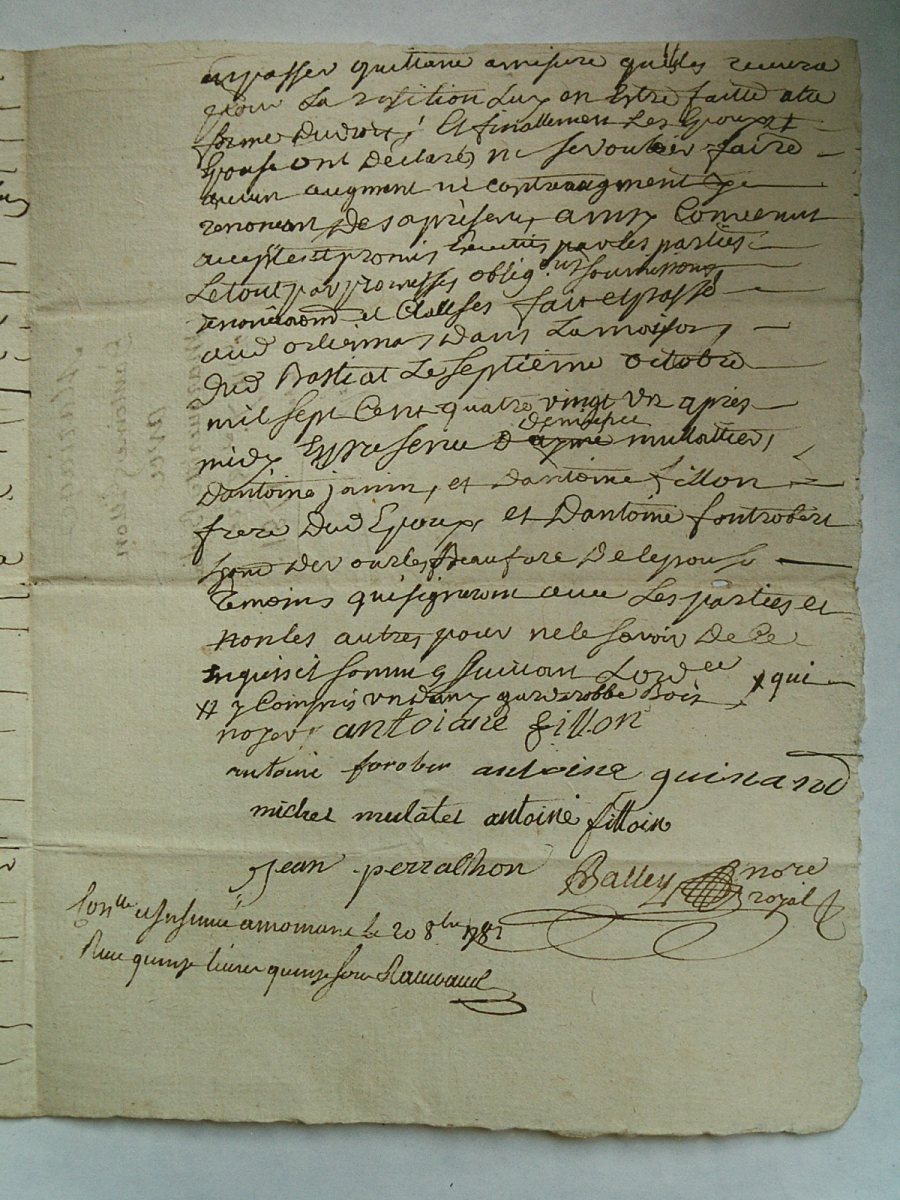 en passer quittance amesure qu'illes recevra
pour La restition Luy en Estre faitte ala
forme du droit; Et finallement Les Epoux et
Epouse ont Declarés ne se vouloir faire
aucun augment ni contreaugment y
renoncant Des a present, ainsy Convenut
accepté et promis Executés par les parties
Le tout par promesses oblig.ons soumissons
renonciaons et Clauses fait et passé
aud orliennas dans La maison
dud Bastiat Le septieme octobre
mil sept Cent quatre vingt un apres
midy En presence D mullattier,
demichel
D'antoine janin, et D'antoine fillon
frere Dud Epoux et D'antoine fontrobert
Beaufrere De lepouse
Temoins qui signeront avec Les parties et
non les autres pour ne le savoir De Ce
Enquis et sommés suivant L'ord.ce
y Compris un garderobbe Bois x qui
noyer antoiane fillon
antoine forober antoine guinand
michel mulatet antoine filloin
Jean perrachon Balley nore
royal
Con.llé et Insinué amornant le 20 8bre 1781
Recu quinze livres quinze sous